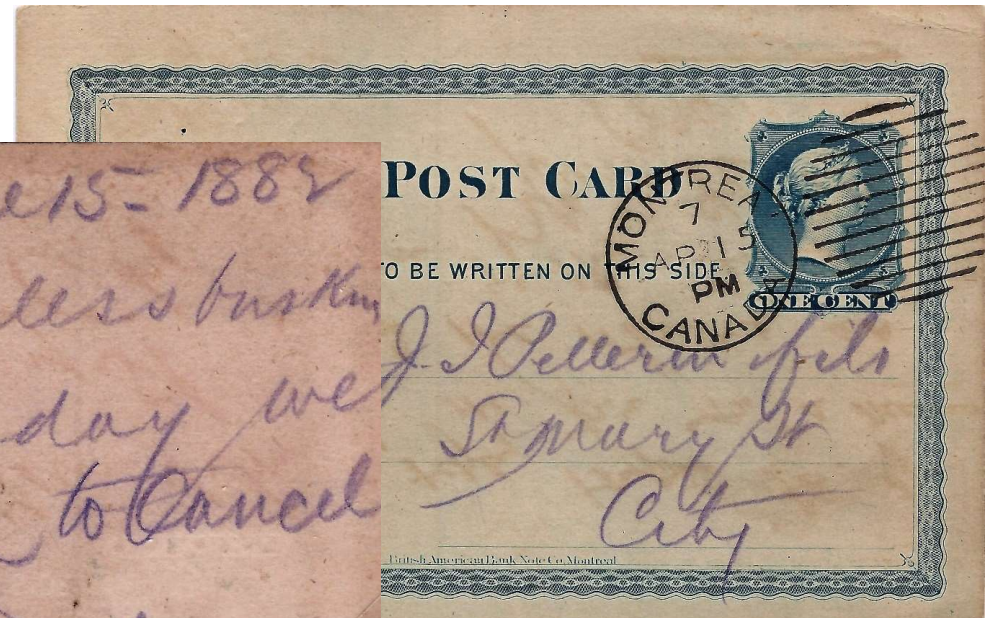 POST CARD
TO BE WRITTEN ON THIS SIDE
ONE CENT
MONTREAL
7
AP 15
PM
CANADA
J. I. Pellerin & fils
St Mary St
City
British American Bank Note Co. Montreal
15 - 1882
less
day we
to Cancel